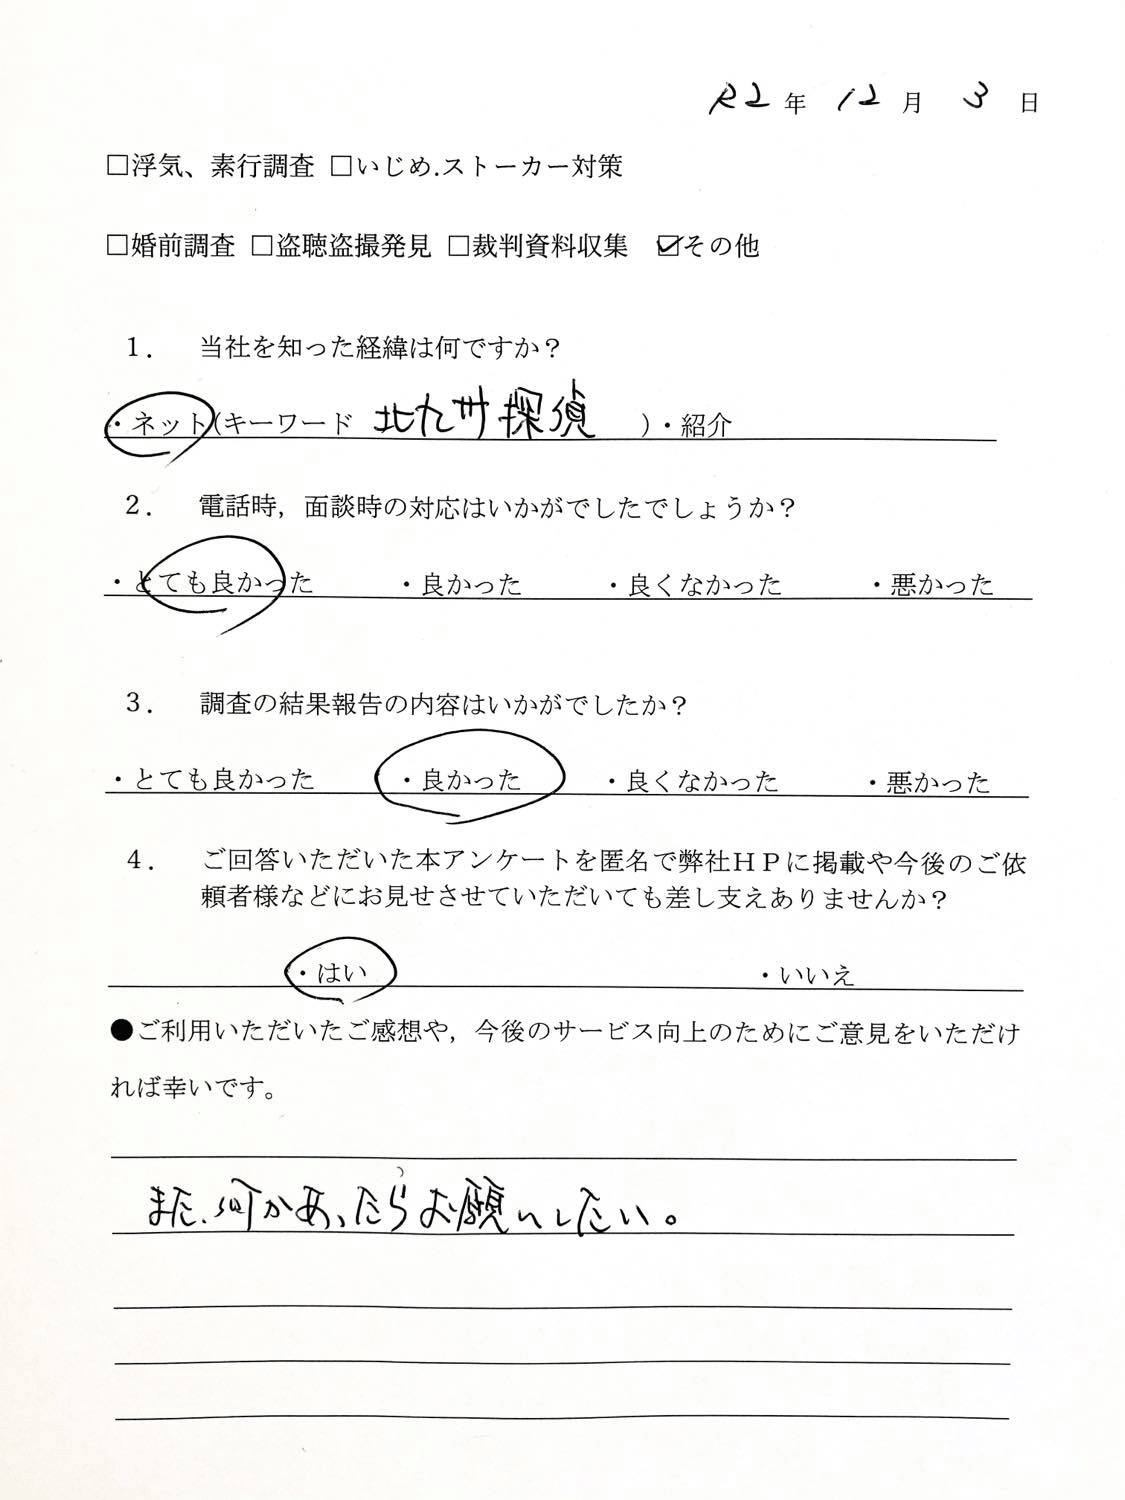 R2年 12月 3日
□浮気、素行調査 □いじめ.ストーカー対策
□婚前調査 □盗聴盗撮発見 □裁判資料収集 ☑その他
1． 当社を知った経緯は何ですか？
・ネット(キーワード 北九州探偵 )・紹介
2． 電話時，面談時の対応はいかがでしたでしょうか？
・とても良かった ・良かった ・良くなかった ・悪かった
3． 調査の結果報告の内容はいかがでしたか？
・とても良かった ・良かった ・良くなかった ・悪かった
4． ご回答いただいた本アンケートを匿名で弊社ＨＰに掲載や今後のご依
頼者様などにお見せさせていただいても差し支えありませんか？
・はい ・いいえ
●ご利用いただいたご感想や，今後のサービス向上のためにご意見をいただけ
れば幸いです。
また、何かあったらお願いしたい。